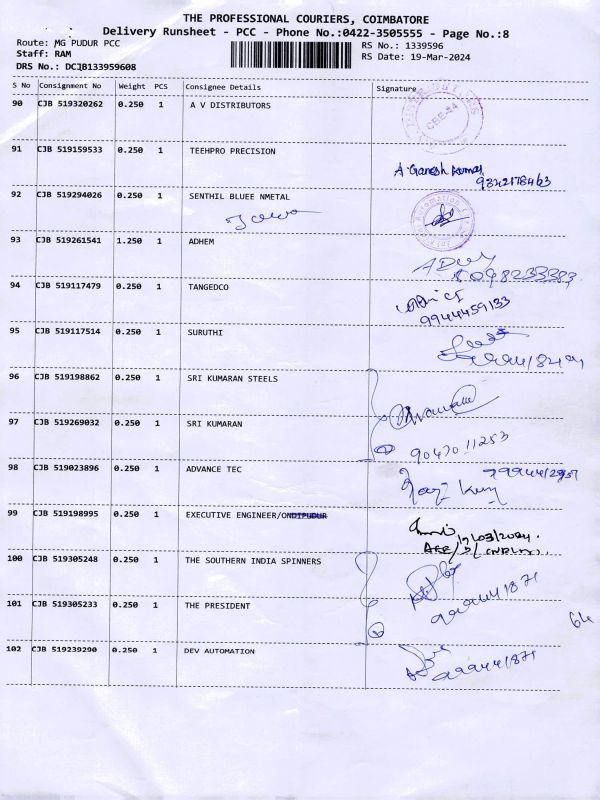 THE PROFESSIONAL COURIERS, COIMBATORE
Delivery Runsheet - PCC - Phone No.:0422-3505555 - Page No.:8
Route: MG PUDUR PCC
RS No.: 1339596
Staff: RAM
RS Date: 19-Mar-2024
DRS No.: DCJB133959608
S No Consignment No Weight PCS Consignee Details Signature
90 CJB 519320262 0.250 1 A V DISTRIBUTORS
91 CJB 519159533 0.250 1 TEEHPRO PRECISION
A. Ganesh Kumar
9842178463
92 CJB 519294026 0.250 1 SENTHIL BLUEE NMETAL
93 CJB 519261541 1.250 1 ADHEM
94 CJB 519117479 0.250 1 TANGEDCO
9944459133
95 CJB 519117514 0.250 1 SURUTHI
96 CJB 519198862 0.250 1 SRI KUMARAN STEELS
97 CJB 519269032 0.250 1 SRI KUMARAN
9047011253
98 CJB 519023896 0.250 1 ADVANCE TEC
99 CJB 519198995 0.250 1 EXECUTIVE ENGINEER/ONDIPUDUR
100 CJB 519305248 0.250 1 THE SOUTHERN INDIA SPINNERS
101 CJB 519305233 0.250 1 THE PRESIDENT
64
102 CJB 519239290 0.250 1 DEV AUTOMATION